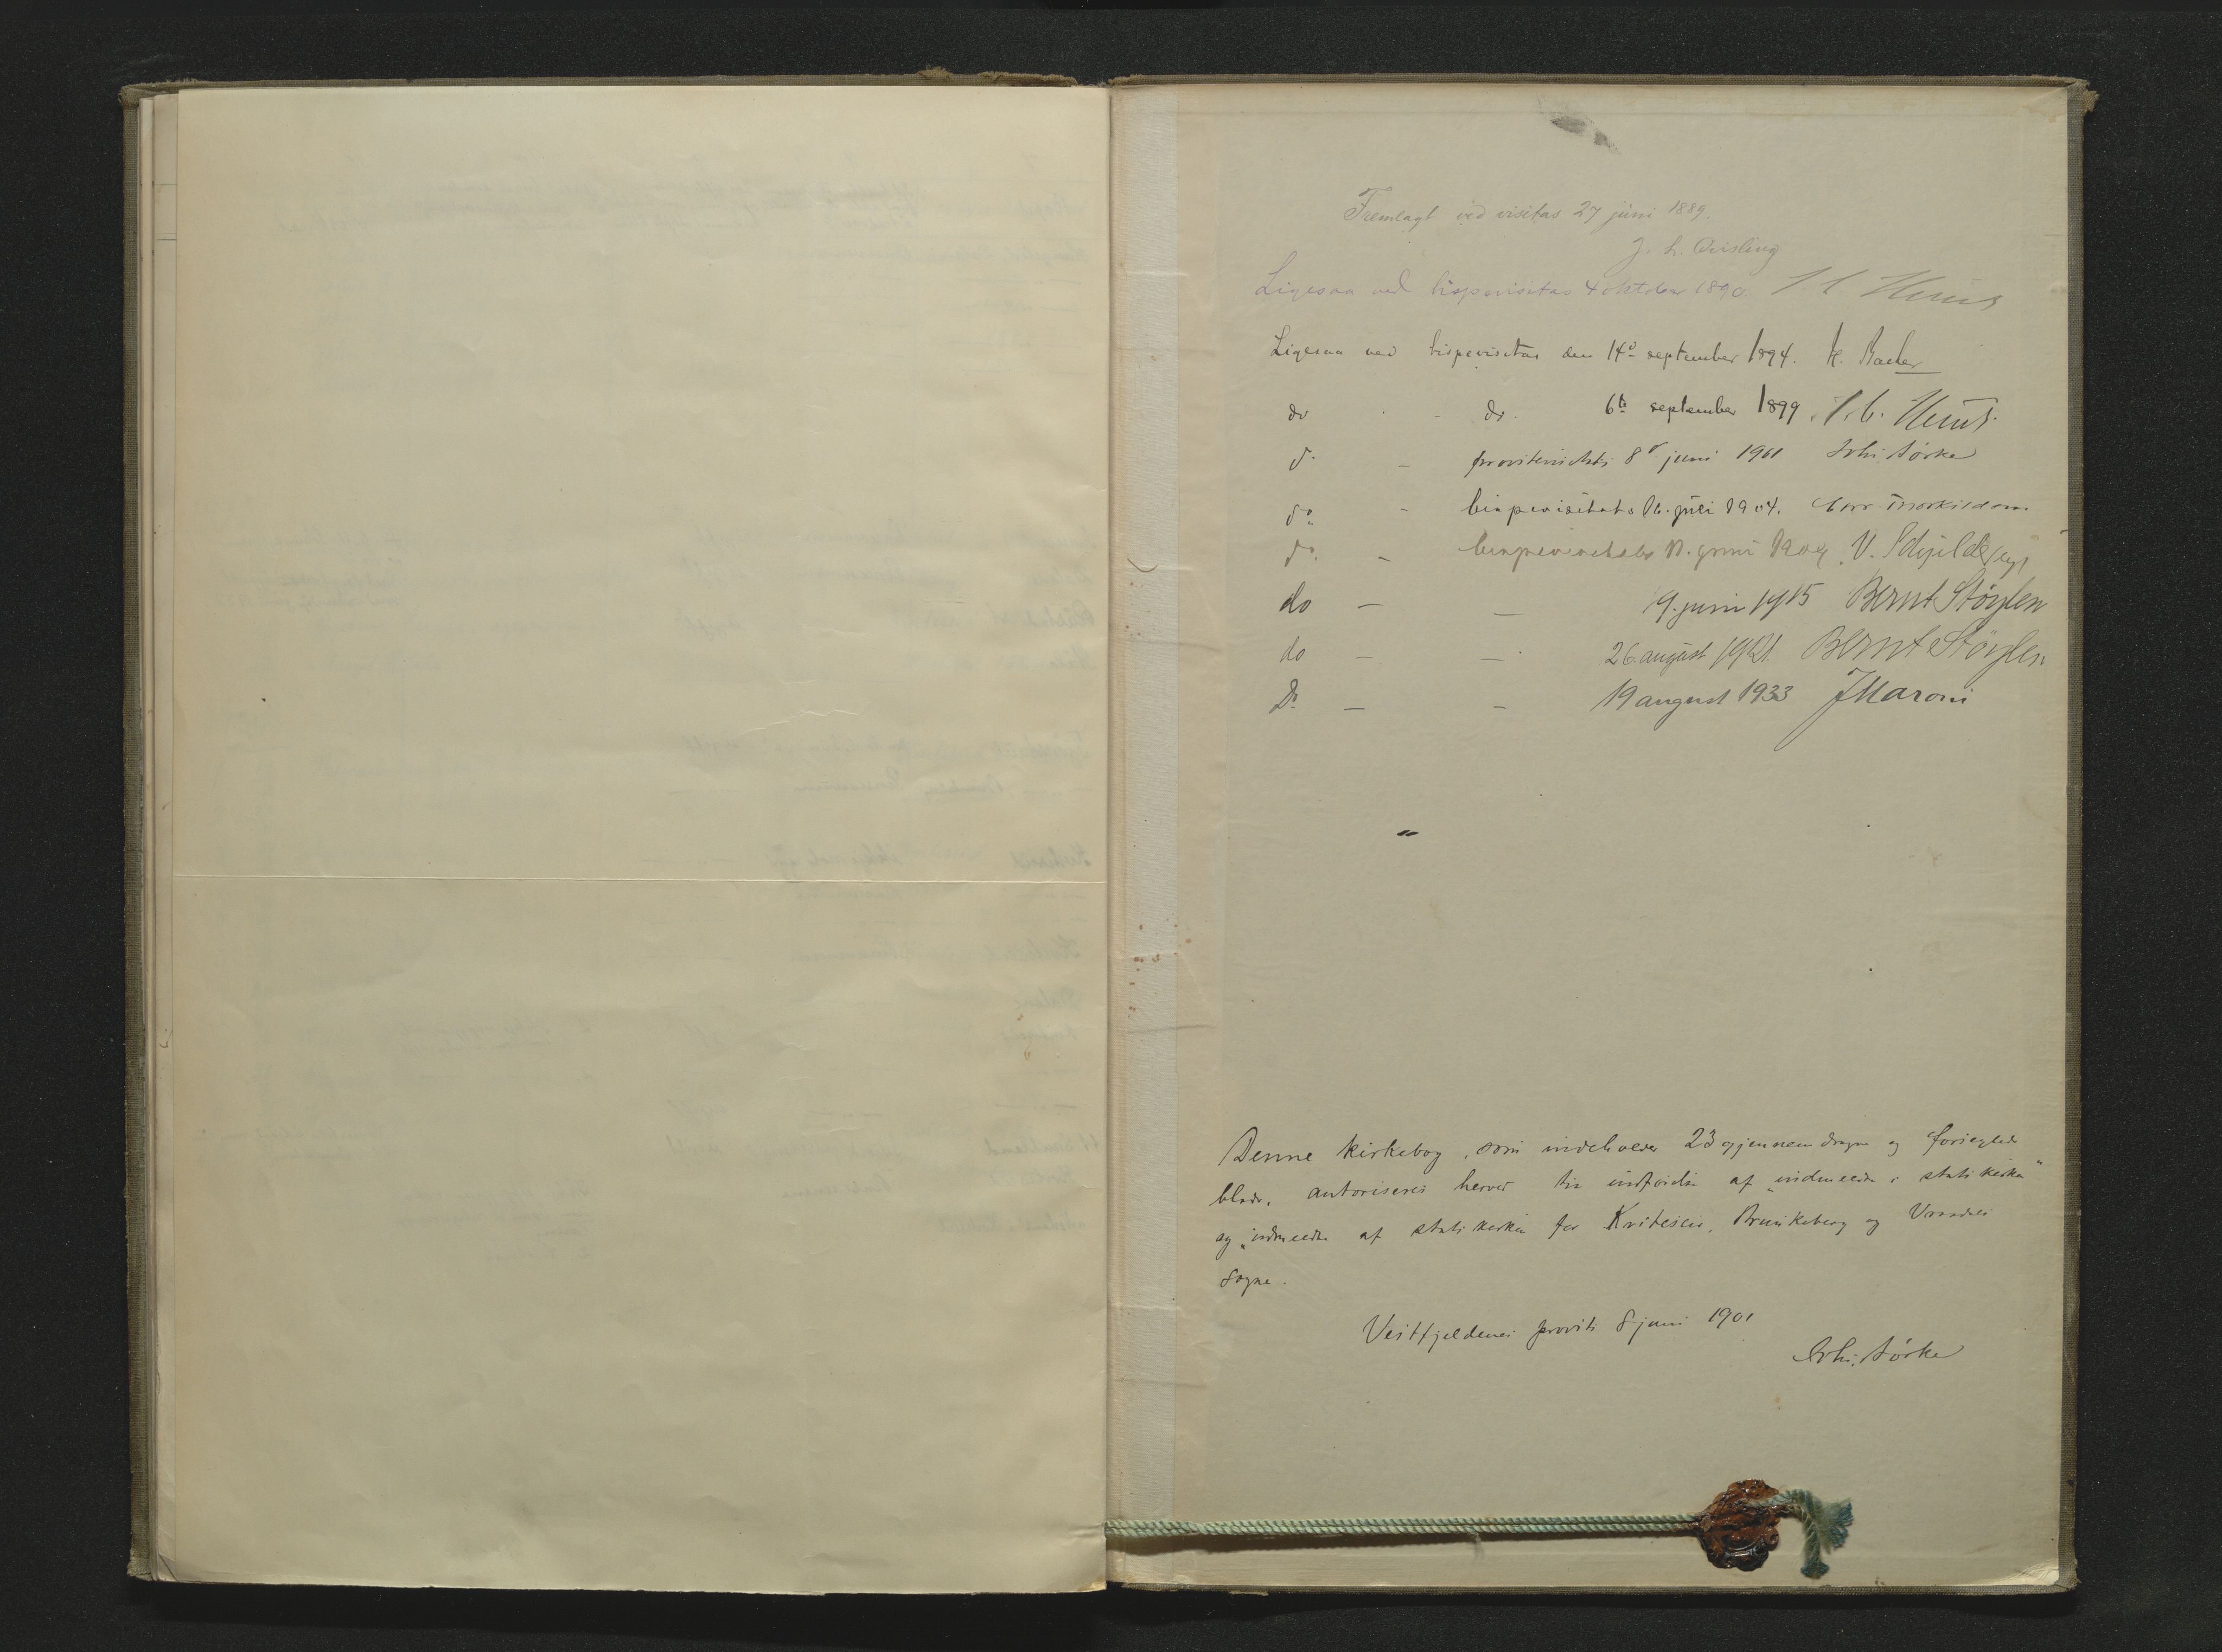 Fremlagt ved visitas 27 juni 1889.
J. L. Qvisling
Ligesaa ved bispevisitas 4 oktober 1890. Heuch
Ligesaa ved bispevisitas den 14de september 1894.
do - do. 6te september 1899. J. C. Heuch.
do - provstevisitats 8de juni 1901 Johs. Sørke
do - bispevisitats 16. juli 1904. Thorkildsen
do. - bispevisitats juni 1909. V. Schjelderup
do - - 9. juni 1915 Bernt Støylen
do - - 26 august 1921 Bernt Støylen
Do. - - 19 august 1933 J Maroni
Denne kirkebog, som indeholder 23 gjennemdragne og forseglede
blade, autoriseres herved til indførelse af "indmeldte i statskirken"
og "udmeldte af statskirken for Kviteseid, Brunkeberg og Vraadals
sogne.
Vestfjeldenes provsti 8 juni 1901
Johs. Sørke